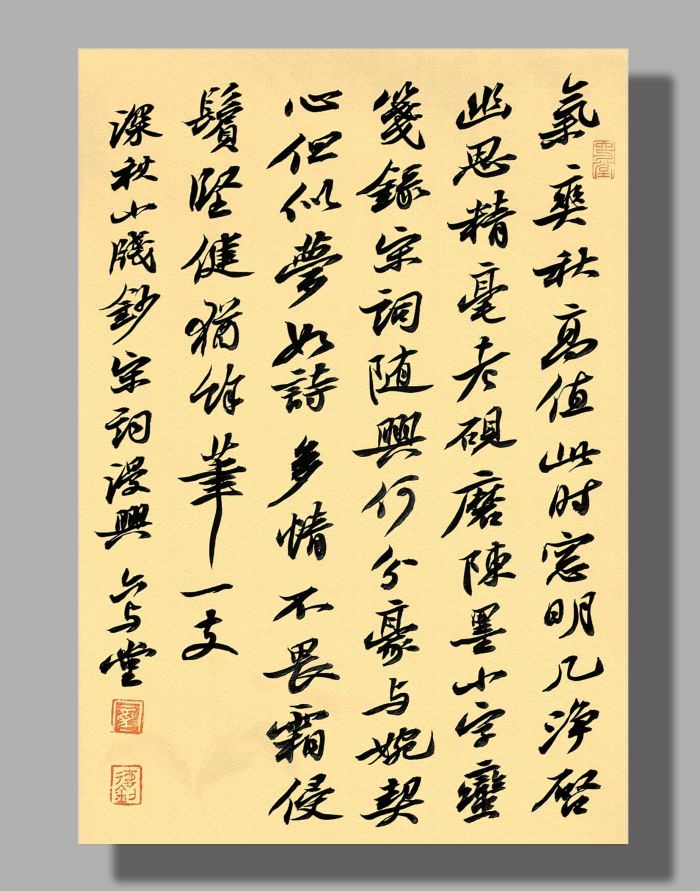 氣爽秋高值此时窓明几净啓
幽思精毫老硯磨陳墨小字蠻
箋錄宋詞随興何分豪与婉契
心但似夢如詩多情不畏霜侵
鬢堅健猶餘筆一支
深秋小牋鈔宋詞漫興 六与堂